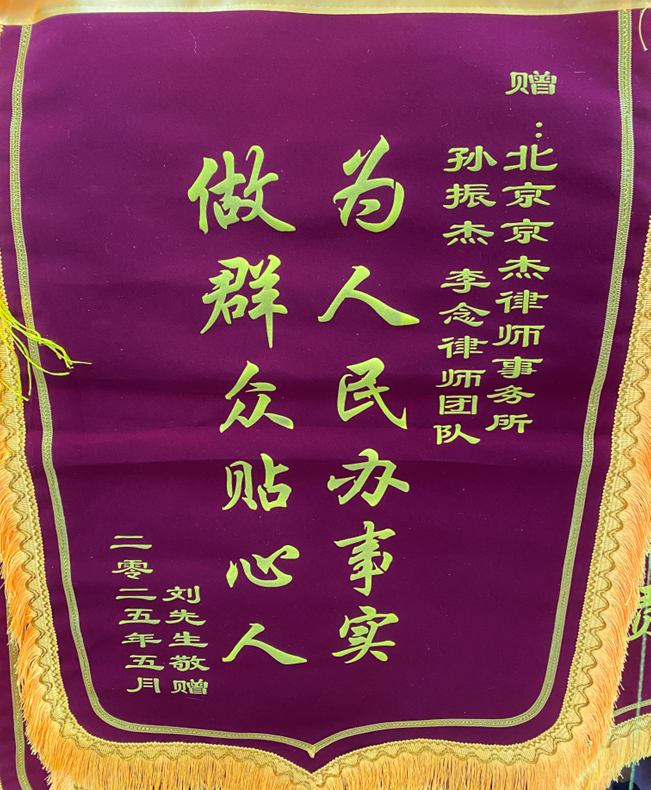 赠：北京京杰律师事务所
孙振杰 李念律师团队
为人民办事实
做群众贴心人
刘先生敬赠
二零二五年五月